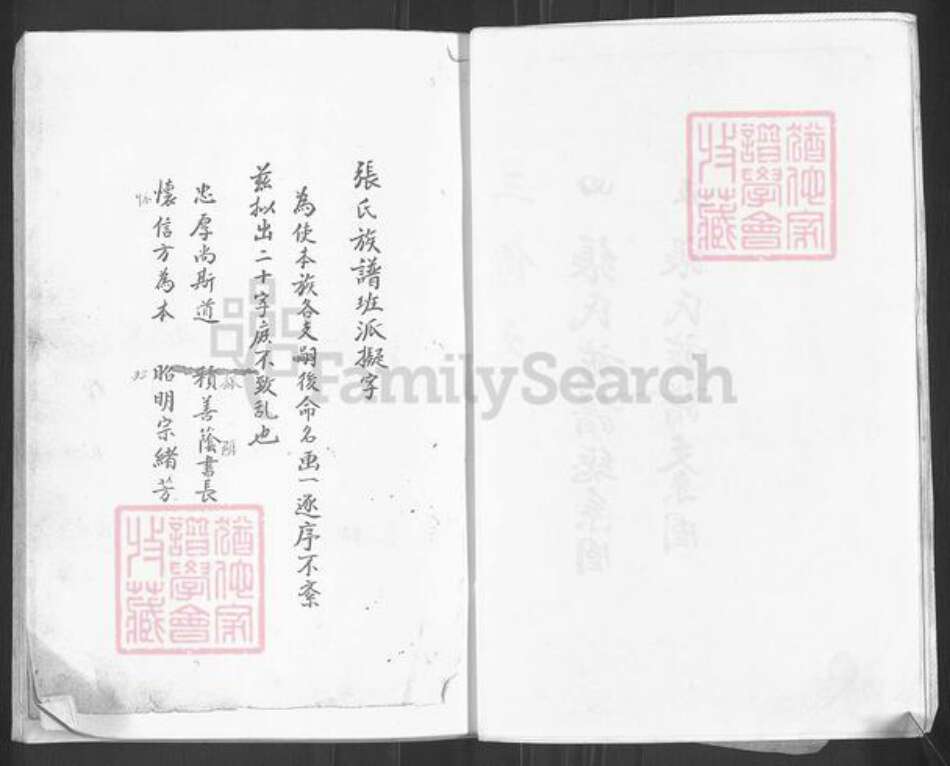 張氏族譜班派擬字
為使本族各支嗣後命名画一逐序不紊
茲拟出二十字庶不致乱也
忠厚尚斯道 積善蔭書長
懷信方為本 昭明宗緒芳
怀
阴
猶他家
譜學會
收藏
猶他家
譜學會
收藏
FamilySearch